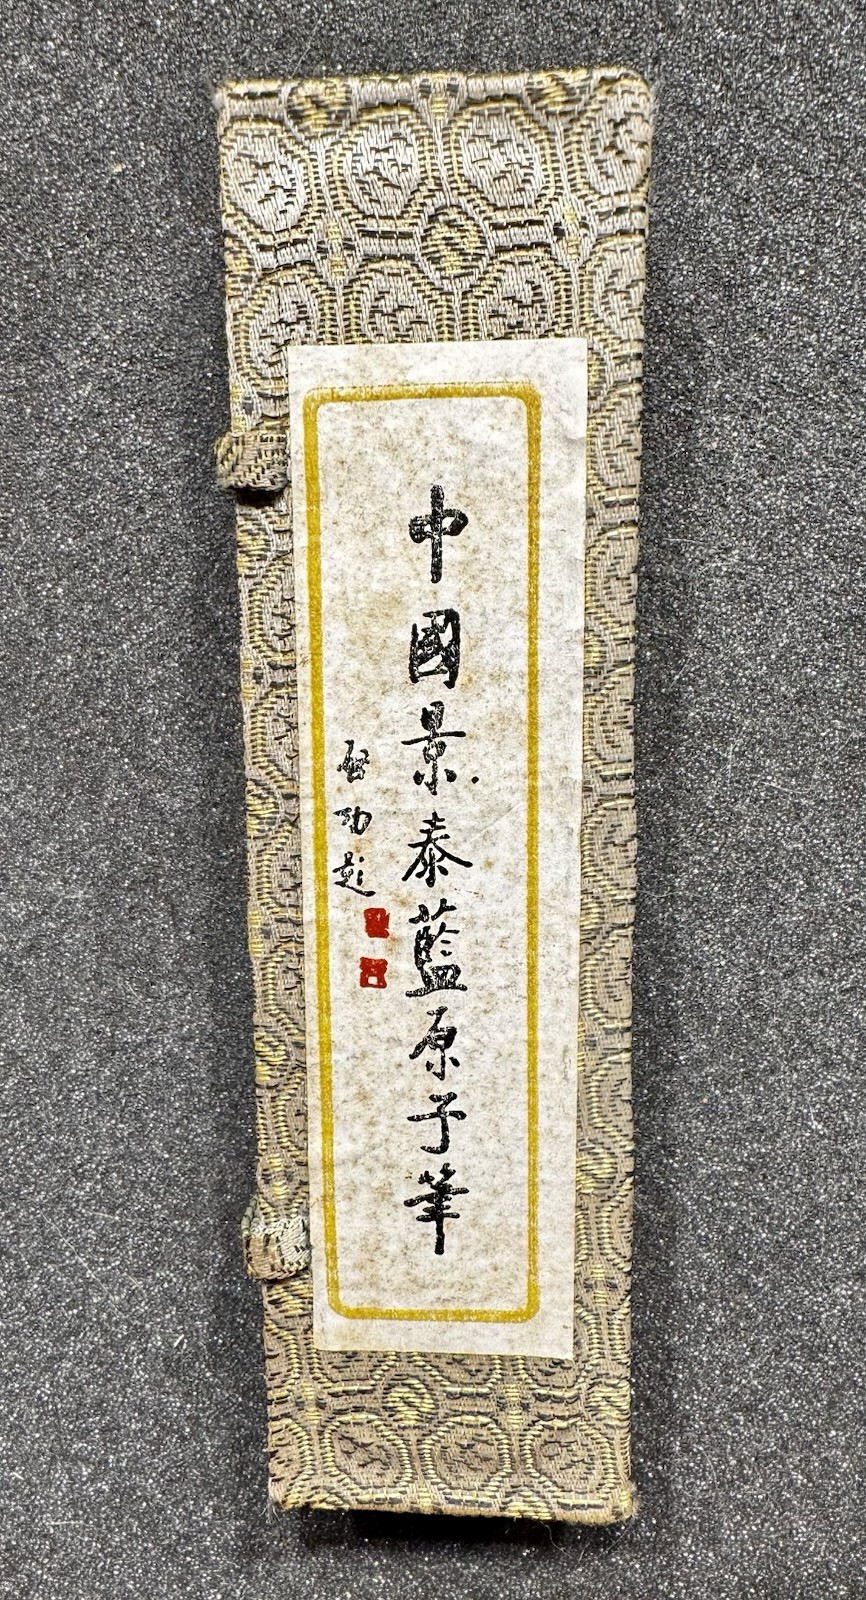 中國景泰藍原子筆
启功题